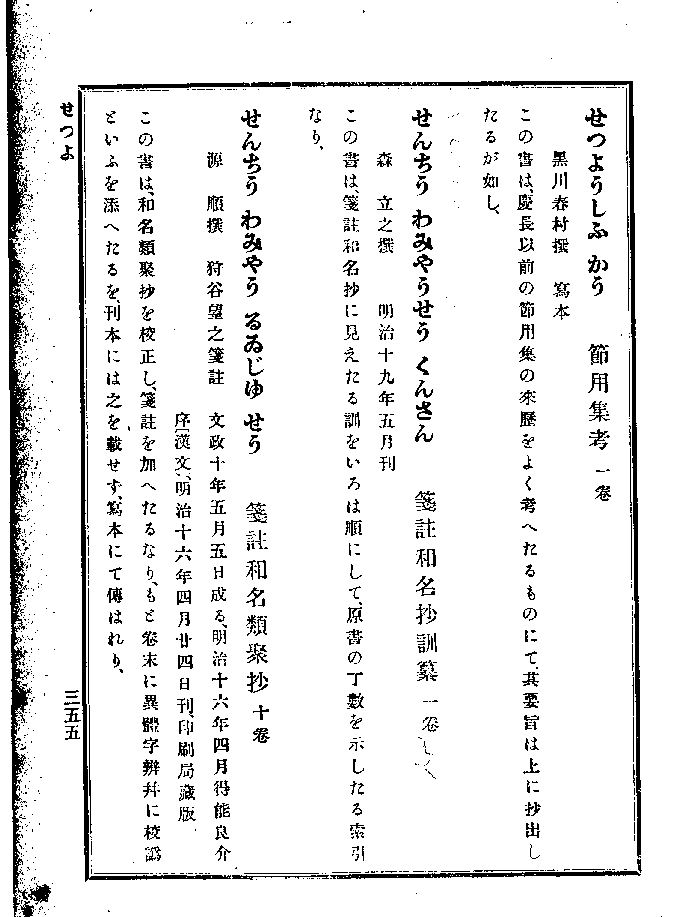 せつようしふ かう　節用集考 一卷
黑川春村撰　寫本
この書は、慶長以前の節用集の來歷をよく考へたるものにて、其要旨は上に抄出し
たるが如し、
せんちう わみやうせう くんさん　箋註和名抄訓纂 一卷
森　立之撰　明治十九年五月刊
この書は、箋註和名抄に見えたる訓をいろは順にして、原書の丁數を示したる索引
なり、
せんちう わみやう るゐじゆ せう　箋註和名類聚抄 十卷
源　順撰　狩谷望之箋註　文政十年五月五日成る、明治十六年四月得能良介
序〔漢文〕、明治十六年四月廿四日刊、印刷局藏版
この書は、和名類聚抄を校正し、箋註を加へたるなり、もと卷末に異體字辨幷に校譌
といふを添へたるを、刊本には之を載せず、寫本にて傳はれり、
せつよ
三五五